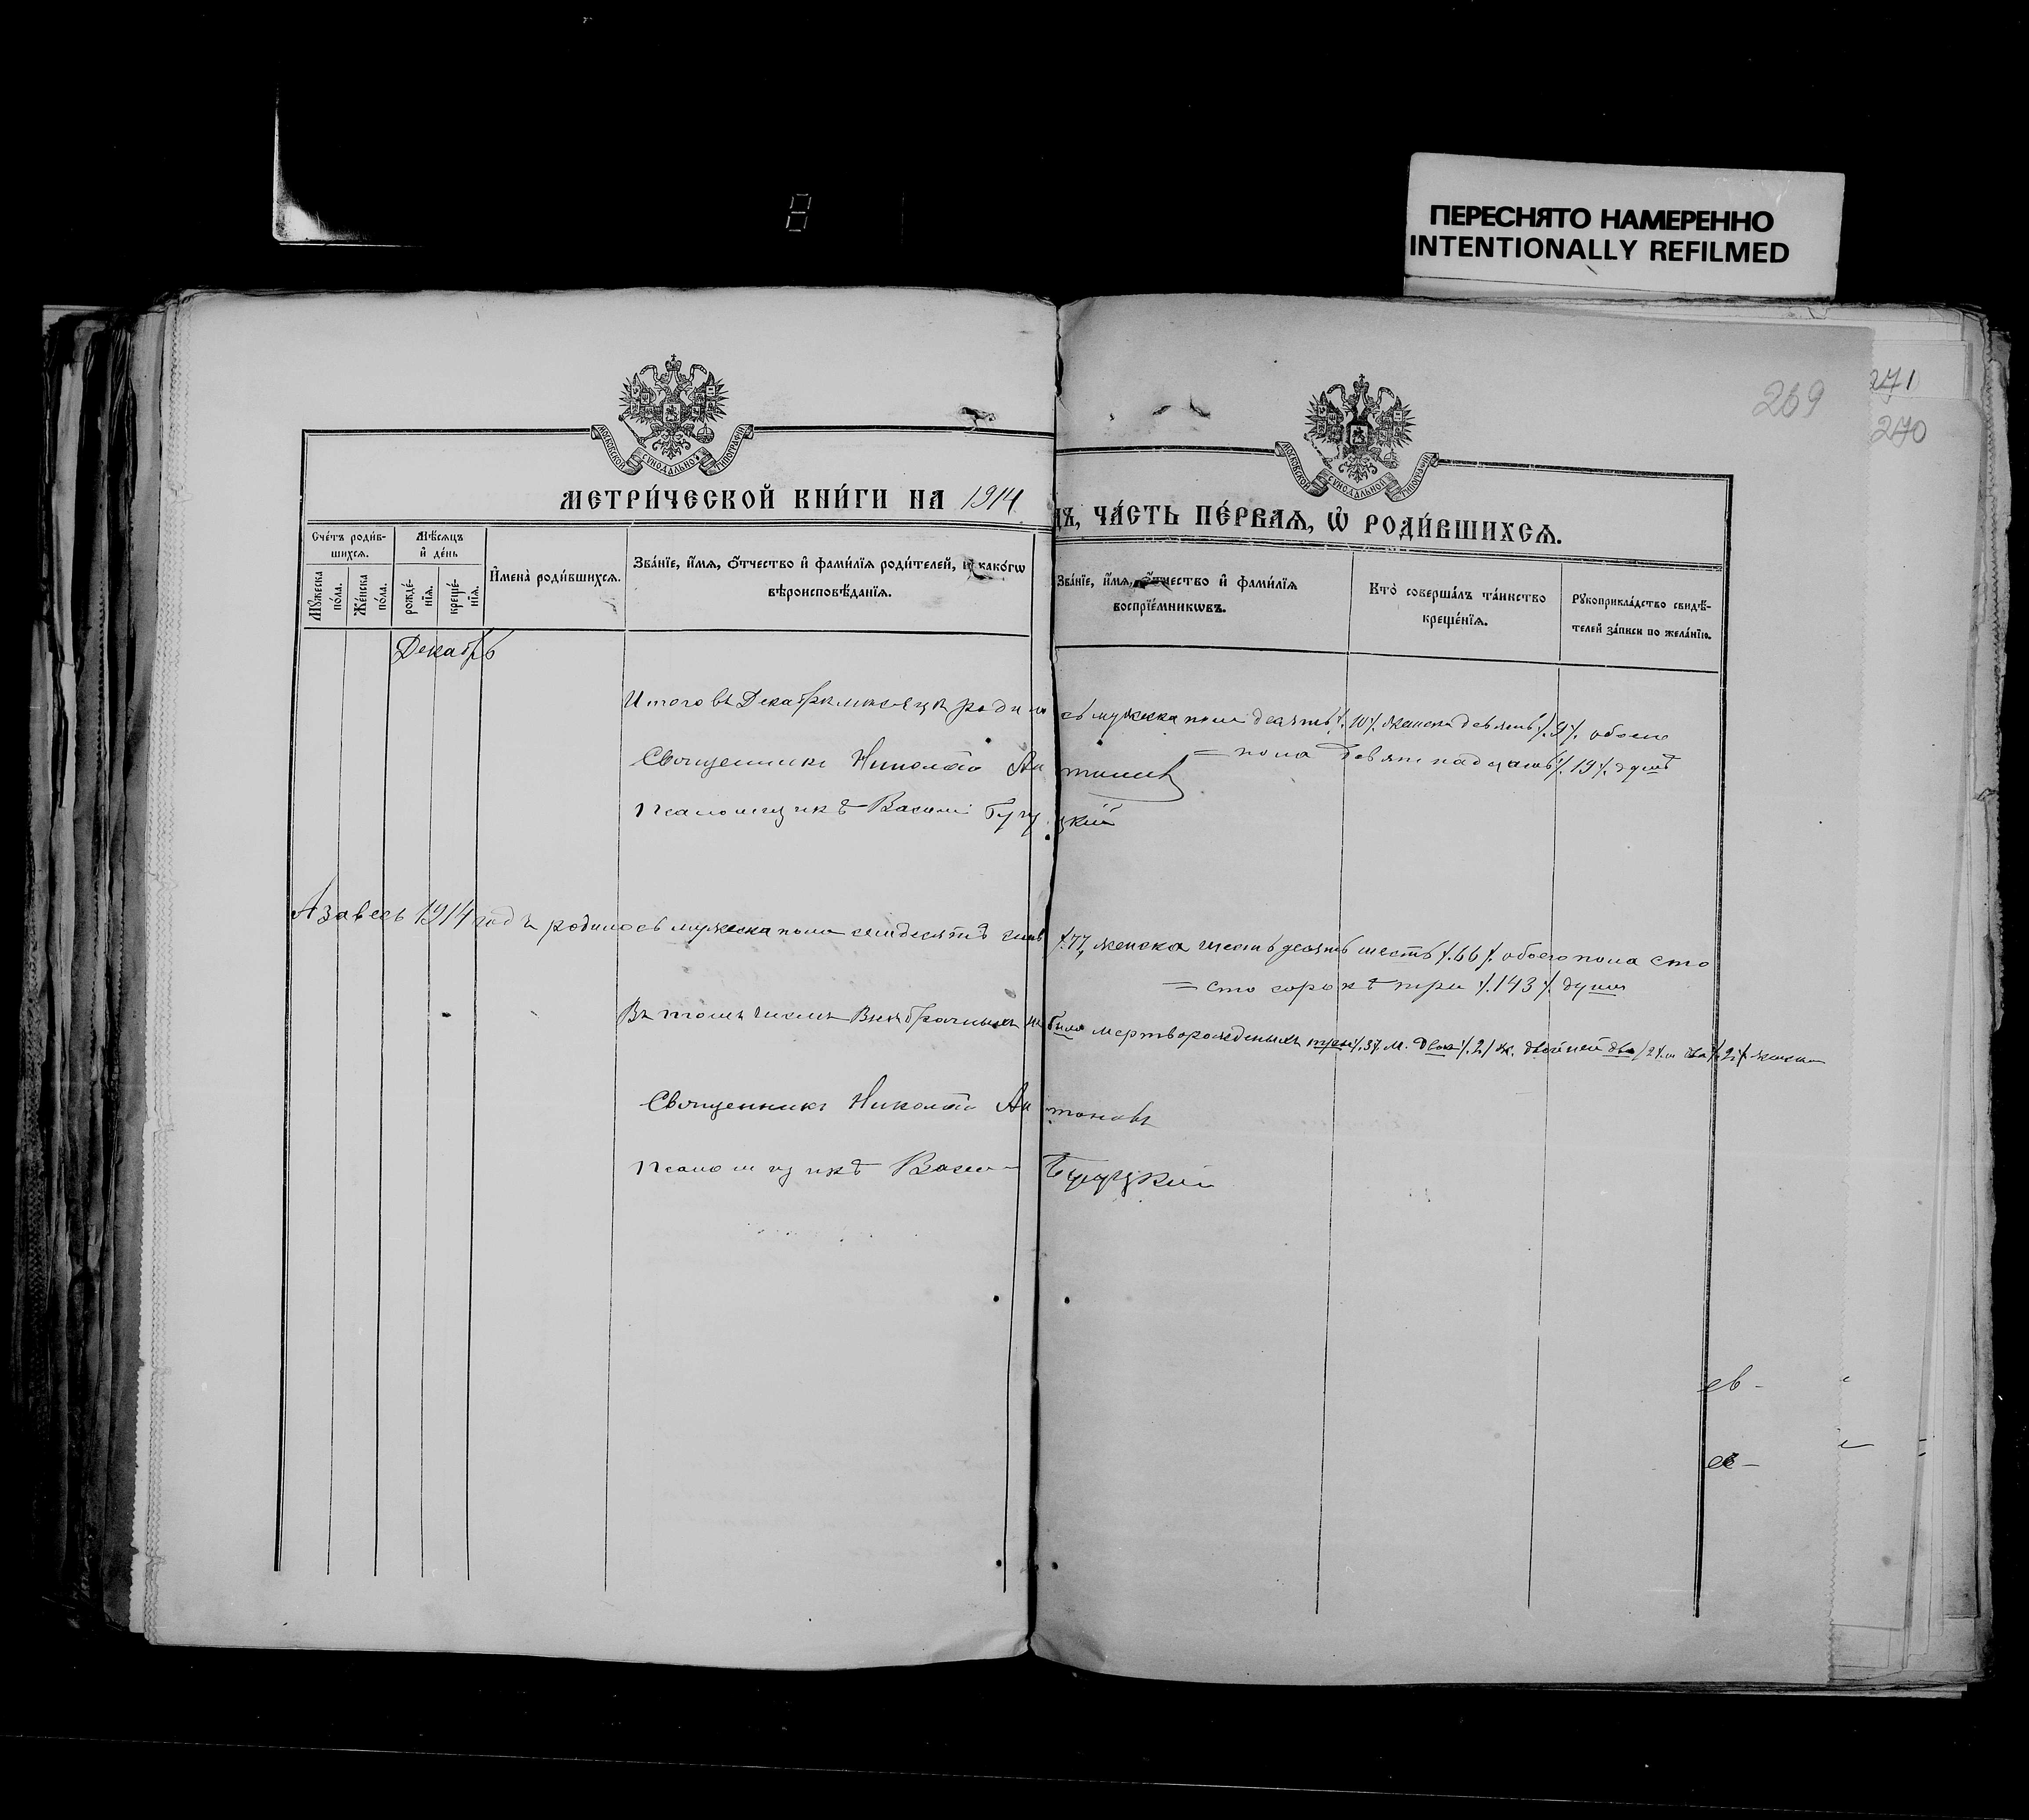 ПЕРЕСНЯТО НАМЕРЕННО
INTENTIONALLY REFILMED
8
269
271
270
МОСКОВСКОЙ СѴНОДАЛЬНОЙ ТИПОГРАФІИ
МОСКОВСКОЙ СѴНОДАЛЬНОЙ ТИПОГРАФІИ
МЕТРИ́ЧЕСКОЙ КНИ́ГИ НА 1914 ДЪ, ЧА́СТЬ ПЕ́РВАѦ, Ѡ҆ РОДИ́ВШИХСѦ.
Сче́тъ роди́в-
шихсѧ.
Мѣ́сѧцъ
и҆ де́нь
Мꙋ́жеска по́ла.
Же́нска по́ла.
рожде́-
нїѧ.
креще́-
нїѧ.
И҆мена̀ роди́вшихсѧ.
Зва́нїе, и҆́мѧ, ѻ҆́тчество и҆ фами́лїѧ роди́телей, и҆ како́гѡ
вѣроисповѣ́данїѧ.
Зва́нїе, и҆́мѧ, ѻ҆́тчество и҆ фами́лїѧ
воспрїе́мникѡвъ.
Кто̀ соверша́лъ та́инство
креще́нїѧ.
Рꙋкоприкла́дство свидѣ́-
телей за́писи по жела́нїю.
Декабрь
Итого въ Декабрѣ мѣсяцѣ родилось мужска пола десять /.10/. женска девять /.9/. обоего
= пола девятнадцать /.19/. душъ
Священникъ Николай Антоновъ
Псаломщикъ Василій
А за весь 1914 годъ родилось мужеска пола семдесятъ семь /.77/. женска шестьдесять шесть /.66/. обоего пола сто
= сто сорокъ три /.143/. души
Въ томъ числѣ Внѣбрачныхъ не было мертворожденныхъ три /.3/. м. двѣ /.2/. ж. двойней два /2/. м два /.2/. женска
Священникъ Николай Антоновъ
Псаломщикъ
ев-
ев-